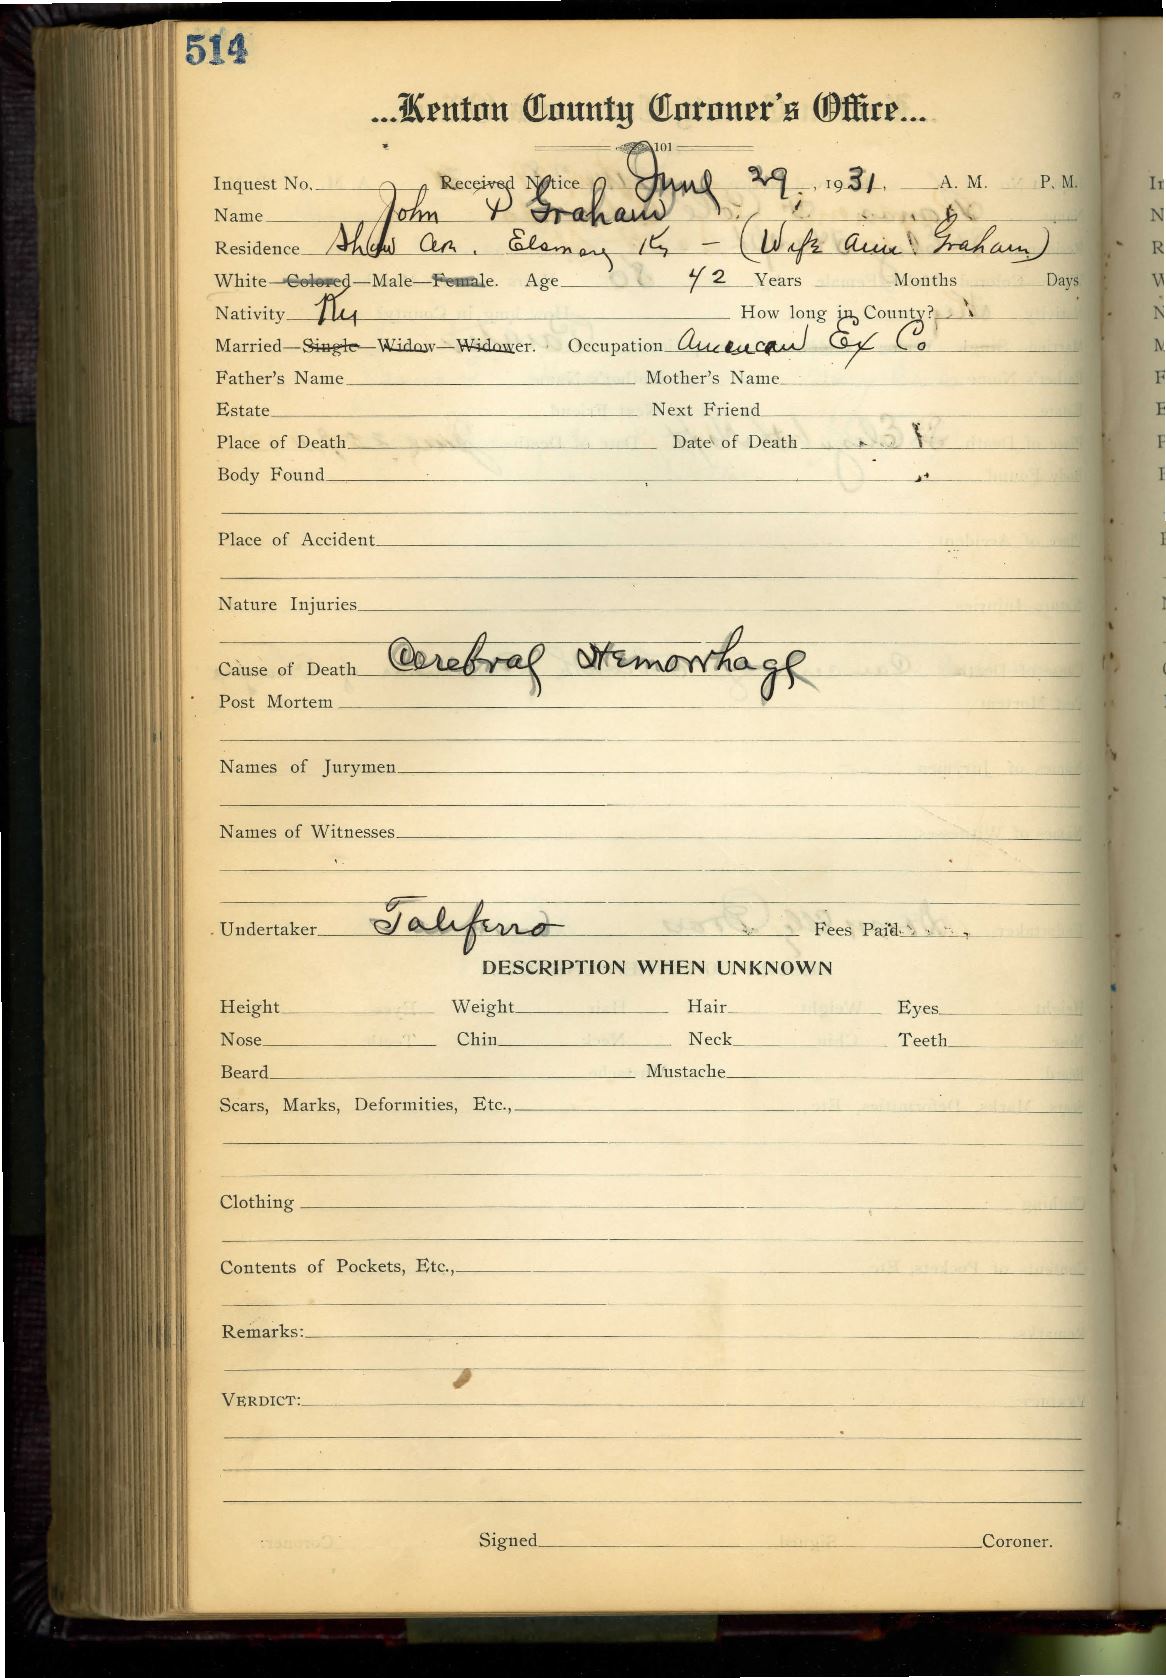 514
...Kenton County Coroner's Office...
101
Inquest No. Received Notice June 29, 1931, A. M. P. M.
Name John P Graham
Residence Shaw Ave. Elsmere Ky — (Wife Graham)
White—Colored—Male—Female. Age 42 Years Months Days
Nativity Ky How long in County?
Married—Single—Widow—Widower. Occupation American Ex Co
Father's Name Mother's Name
Estate Next Friend
Place of Death Date of Death
Body Found
Place of Accident
Nature Injuries
Cause of Death Cerebral Hemorrhage
Post Mortem
Names of Jurymen
Names of Witnesses
Undertaker Taliferro Fees Paid
DESCRIPTION WHEN UNKNOWN
Height Weight Hair Eyes
Nose Chin Neck Teeth
Beard Mustache
Scars, Marks, Deformities, Etc.,
Clothing
Contents of Pockets, Etc.,
Remarks:
VERDICT:
Signed Coroner.